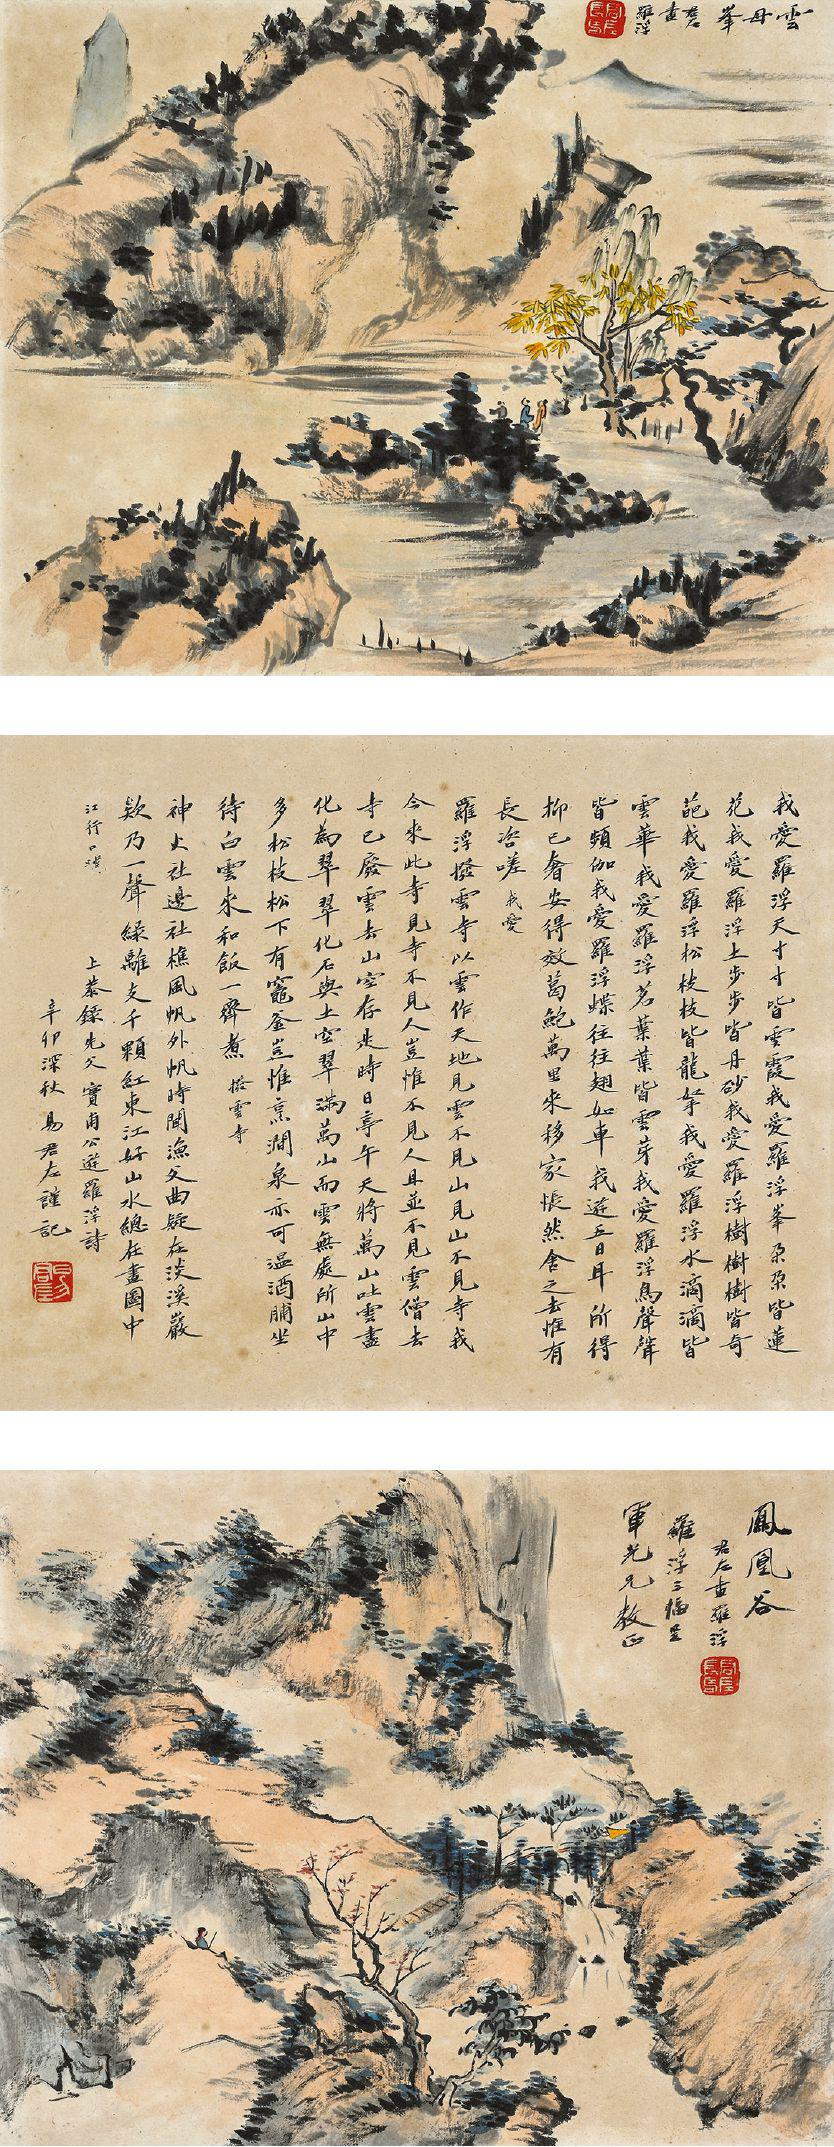 雲丹峯
君左
畫
羅浮
我愛羅浮天寸寸皆雲霞我愛羅浮峯朶朶皆蓮
花我愛羅浮土步步皆丹砂我愛羅浮樹樹樹皆奇
葩我愛羅浮松枝枝皆龍拏我愛羅浮水滴滴皆
雲華我愛羅浮茗葉葉皆雲芽我愛羅浮鳥聲聲
皆頻伽我愛羅浮蝶往往翅如車我遊五日耳所得
抑已奢安得效葛鮑萬里來移家悵然舍之去惟有
長咨嗟 我愛
羅浮撥雲寺以雲作天地見雲不見山見山不見寺我
今來此寺見寺不見人豈惟不見人且並不見雲僧去
寺已廢雲去山空存是時日亭午天將萬山吐雲盡
化為翠翠化石與土空翠滿萬山而雲無處所山中
多松枝松下有竈釜豈惟烹澗泉亦可温酒脯坐
待白雲來和飯一齊煮 撥雲寺
神火社邊社樵風帆外帆時聞漁父曲疑在淡溪巖
欸乃一聲綠離支千顆紅東江好山水總在畫圖中
江行口漢
上恭錄先父實甫公遊羅浮詩
辛卯深秋 易君左謹記
鳳凰谷
君左畫羅浮
羅浮三幅呈
軍光兄教正